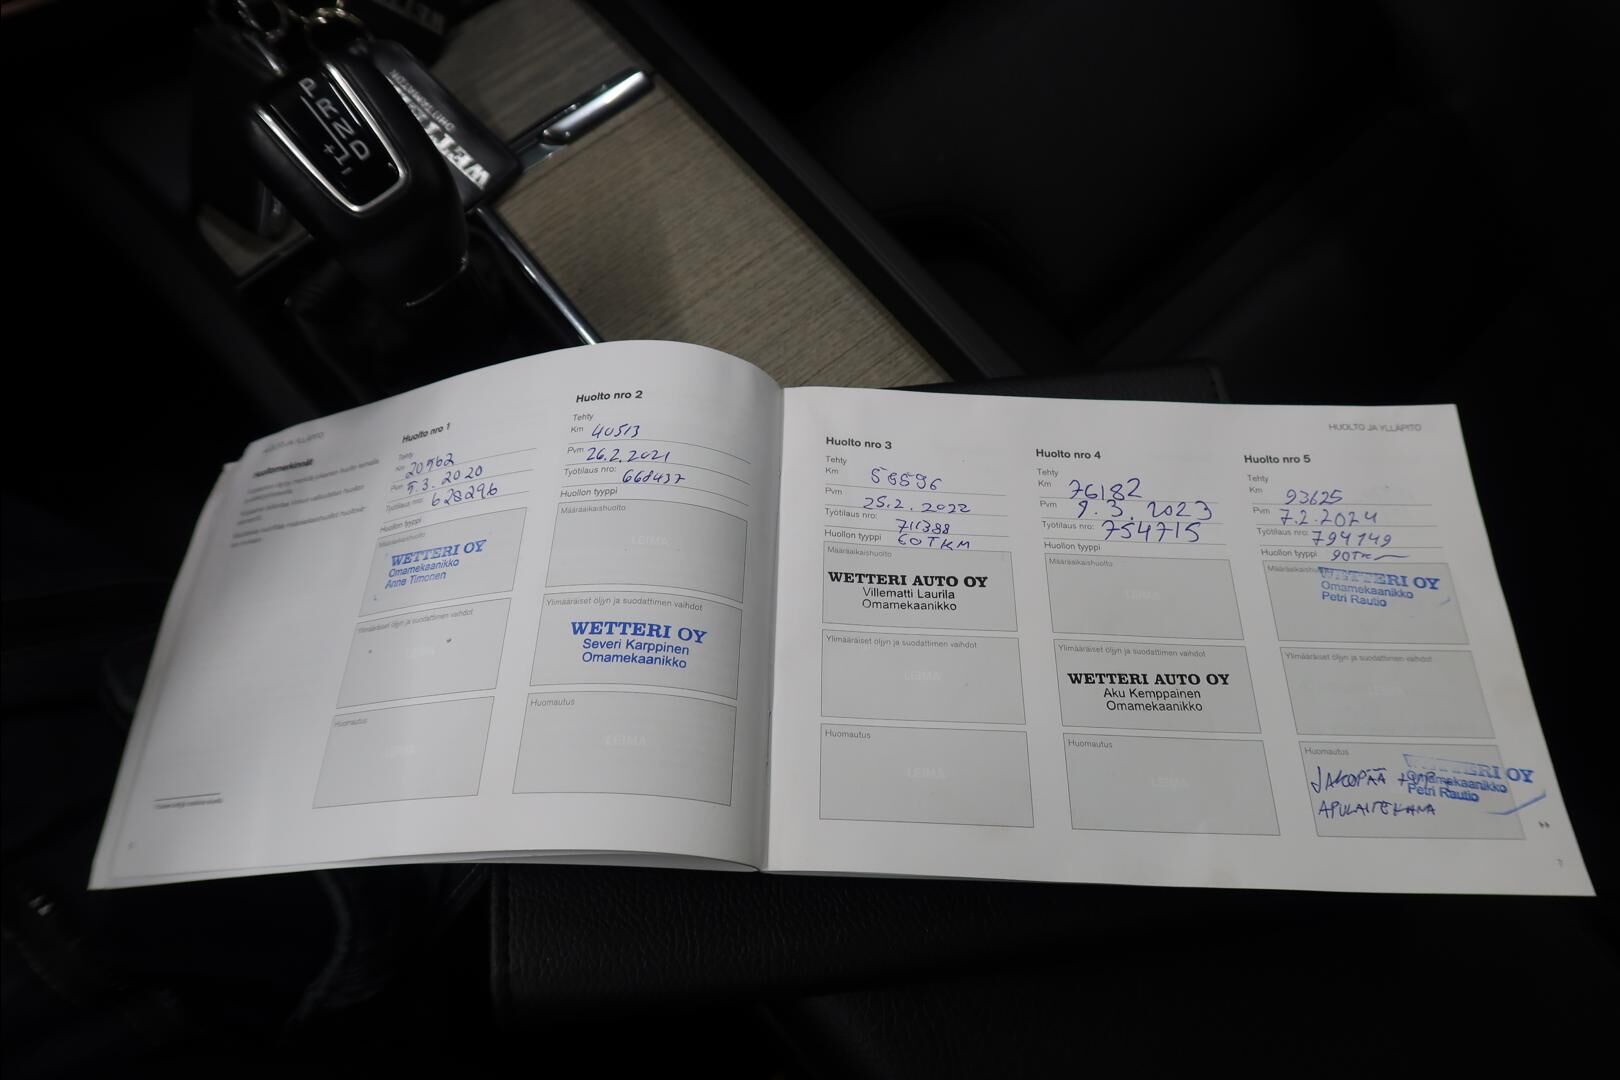 P
R
N
D
+
-
WETTERI
HUOLTO JA YLLÄPITO
Huoltomerkinnät
Huolto nro 1
Tehty
Km 20962
Pvm 5.3.2020
Työtilaus nro: 628296
Huollon tyyppi
Määräaikaishuolto
WETTERI OY
Omamekaanikko
Anne Timonen
Ylimääräiset öljyn ja suodattimen vaihdot
LEIMA
Huomautus
LEIMA
Huolto nro 2
Tehty
Km 40513
Pvm 26.2.2021
Työtilaus nro: 668437
Huollon tyyppi
Määräaikaishuolto
LEIMA
Ylimääräiset öljyn ja suodattimen vaihdot
WETTERI OY
Severi Karppinen
Omamekaanikko
Huomautus
LEIMA
HUOLTO JA YLLÄPITO
Huolto nro 3
Tehty
Km
Pvm 25.2.2022
Työtilaus nro: 711388
Huollon tyyppi 60TKM
Määräaikaishuolto
WETTERI AUTO OY
Villematti Laurila
Omamekaanikko
Ylimääräiset öljyn ja suodattimen vaihdot
LEIMA
Huomautus
LEIMA
Huolto nro 4
Tehty
Km 76182
Pvm 9.3.2023
Työtilaus nro: 754715
Huollon tyyppi
Määräaikaishuolto
LEIMA
Ylimääräiset öljyn ja suodattimen vaihdot
WETTERI AUTO OY
Aku Kemppainen
Omamekaanikko
Huomautus
LEIMA
Huolto nro 5
Tehty
Km 93625
Pvm 7.2.2024
Työtilaus nro: 794149
Huollon tyyppi 90TK
Määräaikaishuolto
WETTERI OY
Omamekaanikko
Petri Rautio
Ylimääräiset öljyn ja suodattimen vaihdot
LEIMA
Huomautus
WETTERI OY
Omamekaanikko
Petri Rautio
JAKOPÄÄ +
APULAITEHIHNA
7